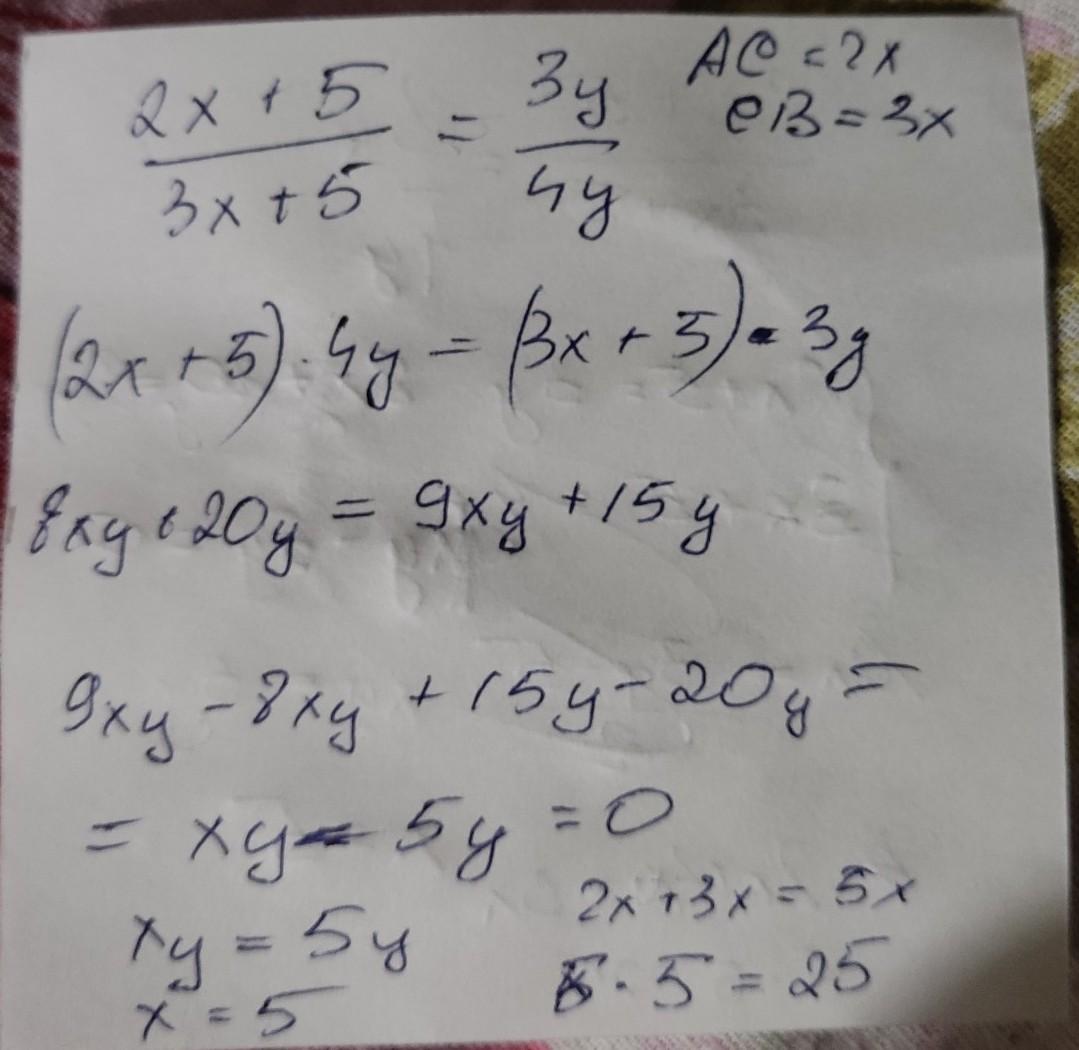 AC = 2x
CB = 3x
2x + 5 / 3x + 5 = 3y / 4y
(2x + 5) · 4y = (3x + 5) · 3y
8xy + 20y = 9xy + 15y
9xy - 8xy + 15y - 20y =
= xy - 5y = 0
xy = 5y
x = 5
2x + 3x = 5x
5 · 5 = 25